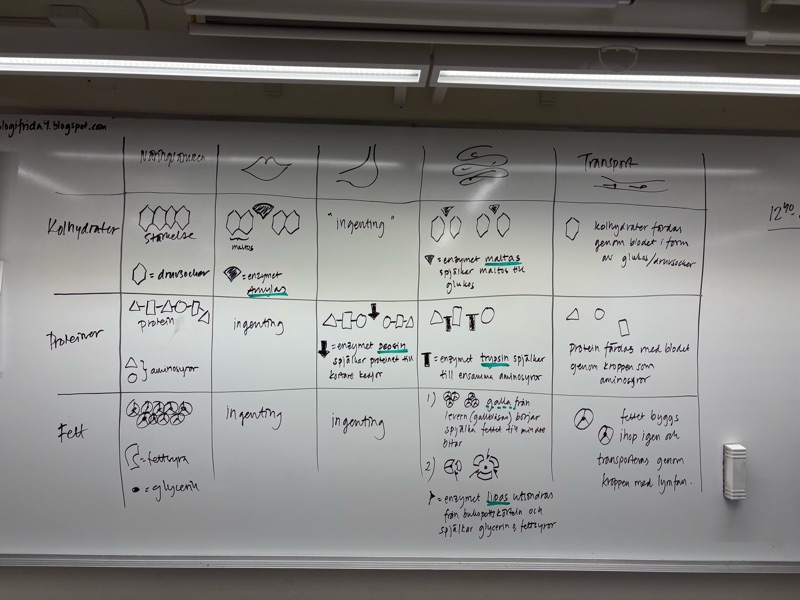 logifrida9.blogspot.com
Näringsämnen
Transport
12 40
Kolhydrater
stärkelse
= druvsocker
maltos
= enzymet
amylas
"ingenting"
= enzymet maltas
spjälker maltos till
glukos
kolhydrater färdas
genom blodet i form
av glukos/druvsocker
Proteiner
protein
} aminosyror
ingenting
= enzymet pepsin
spjälkar proteinet till
kortare kedjor
= enzymet trypsin spjälker
till ensamma aminosyror
Protein färdas med blodet
genom kroppen som
aminosyror
Fett
= fettsyra
= glycerin
ingenting
ingenting
1) galla från
levern (gallblåsan) börjar
spjälka fettet till mindre
bitar
2)
= enzymet lipas utsöndras
från bukspottkörteln och
spjälkar glycerin & fettsyror
fettet byggs
ihop igen och
transporteras genom
kroppen med lymfan.